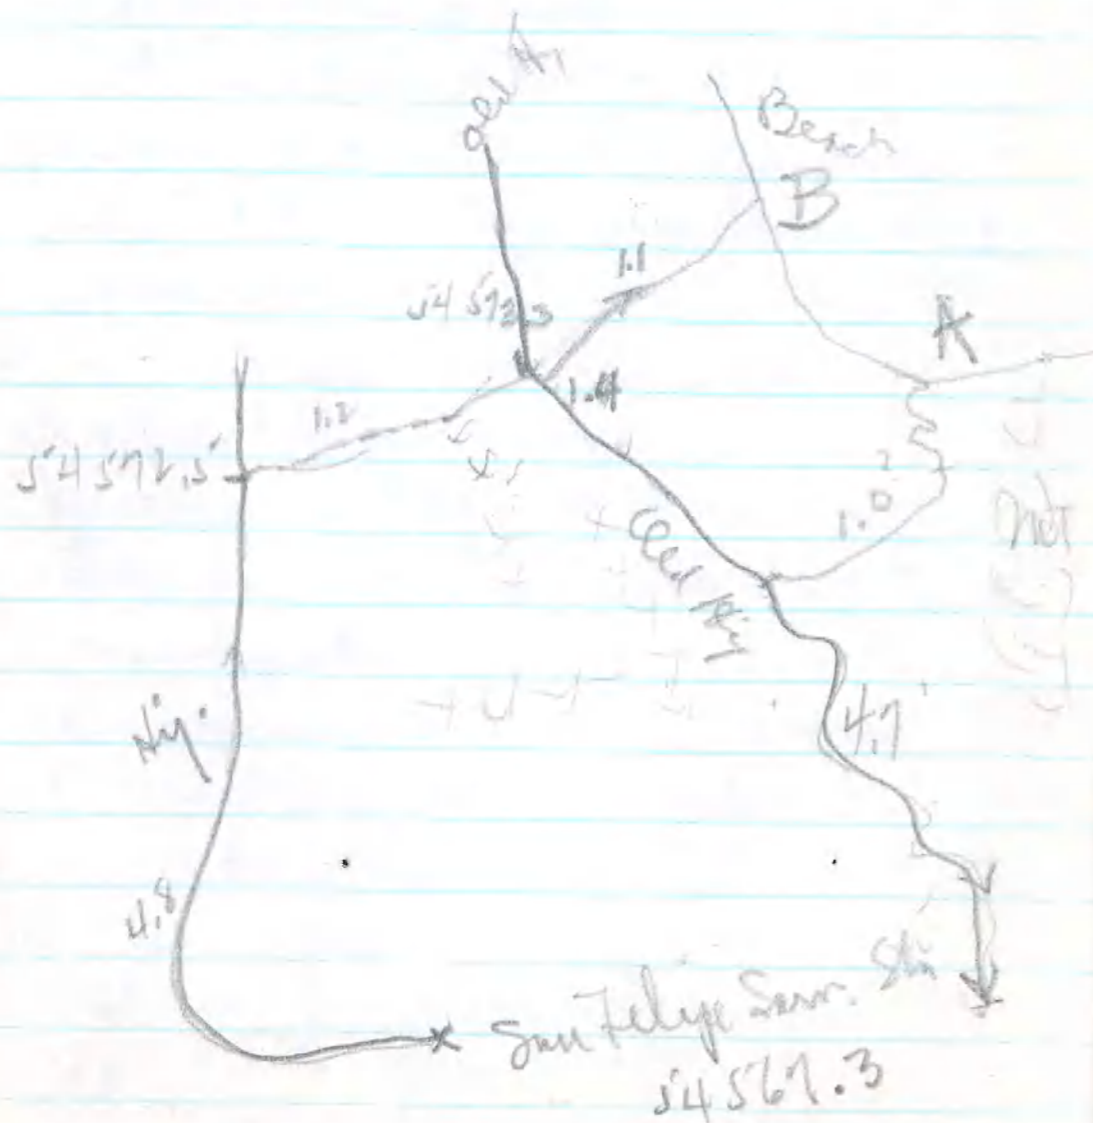 Old Hy
Beach
B
1.1
54 572.3
A
1.4
1.2
54 572.5
1.0
Old Hy
Hy.
4.7
4.8
San Felipe Serv. Sta
54 567.3